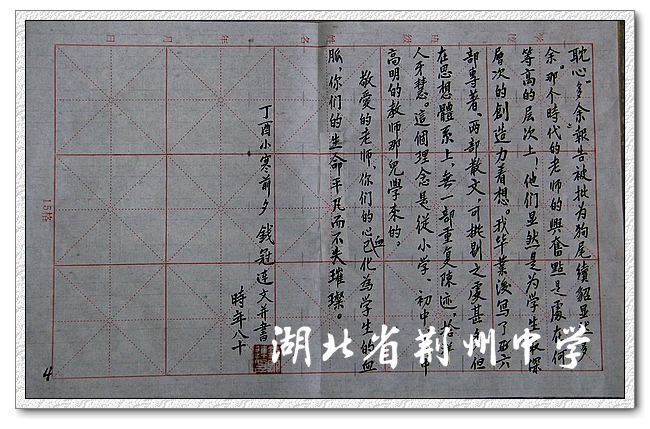 耽心多余報告被批为狗尾續貂显然多
余。那个時代的老师的興奮點是處在何
等高的层次上，他们显然是为学生最深
層次的創造力着想。我毕業後寫了
部專著、两部散文，可挑剔之處甚多，但
在思想體系上，無一部重复陳迹，拾
人牙慧。這個理念是從小学、初中
高明的教师那兒學来的。
敬愛的老师，你们的心血已化為学生的血
脈，你们的生命平凡而不失璀璨。
丁酉小寒前夕 錢冠連文并書
時年八十
15格
4
湖北省荆州中学